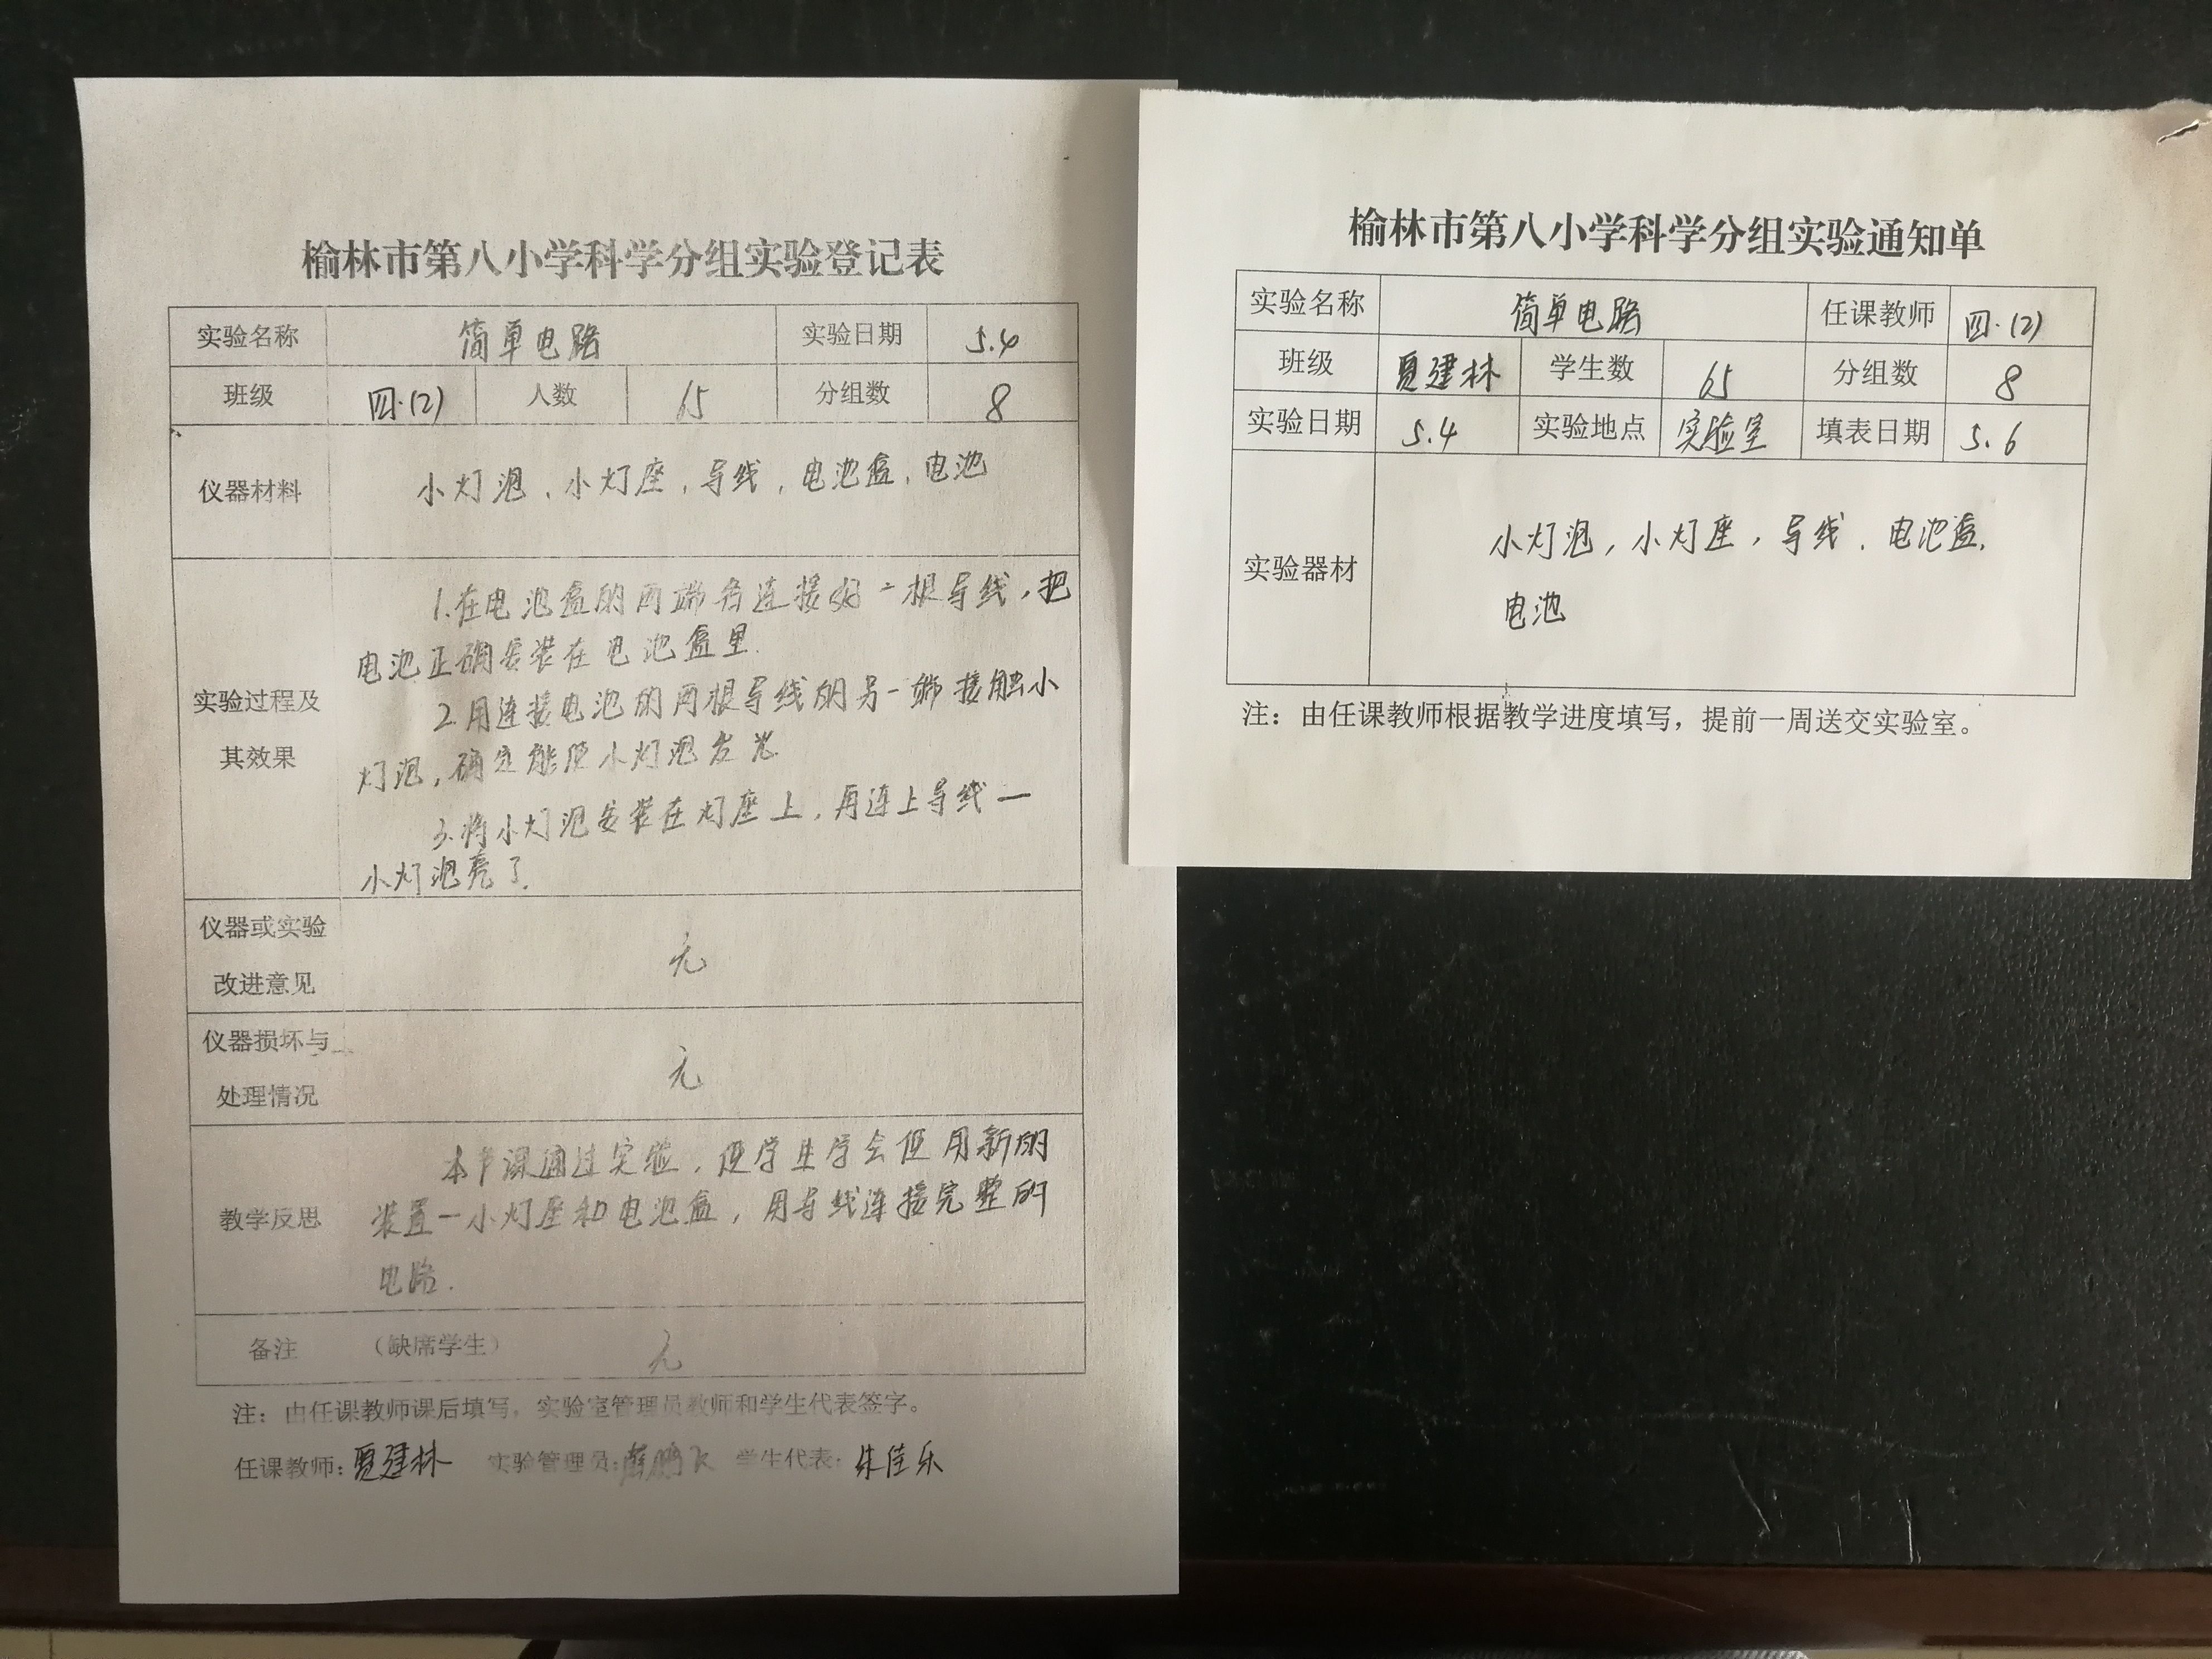 榆林市第八小学科学分组实验登记表
实验名称 简单电路 实验日期 5.4
班级 四·(2) 人数 65 分组数 8
仪器材料 小灯泡、小灯座,导线,电池盒、电池
实验过程及其效果
1.在电池盒的两端各连接好一根导线,把
电池正确安装在电池盒里.
2.用连接电池的两根导线的另一端接触小
灯泡,确定能使小灯泡发光.
3.将小灯泡安装在灯座上,再连上导线—
小灯泡亮了.
仪器或实验
改进意见 无
仪器损坏与
处理情况 无
教学反思
本节课通过实验,使学生学会使用新的
装置—小灯座和电池盒,用导线连接完整的
电路.
备注 (缺席学生) 无
注:由任课教师课后填写,实验室管理员教师和学生代表签字。
任课教师:夏建林 实验管理员: 学生代表:朱佳乐
榆林市第八小学科学分组实验通知单
实验名称 简单电路 任课教师 四·(2)
班级 夏建林 学生数 65 分组数 8
实验日期 5.4 实验地点 实验室 填表日期 5.6
实验器材 小灯泡,小灯座,导线、电池盒.
电池
注:由任课教师根据教学进度填写,提前一周送交实验室。